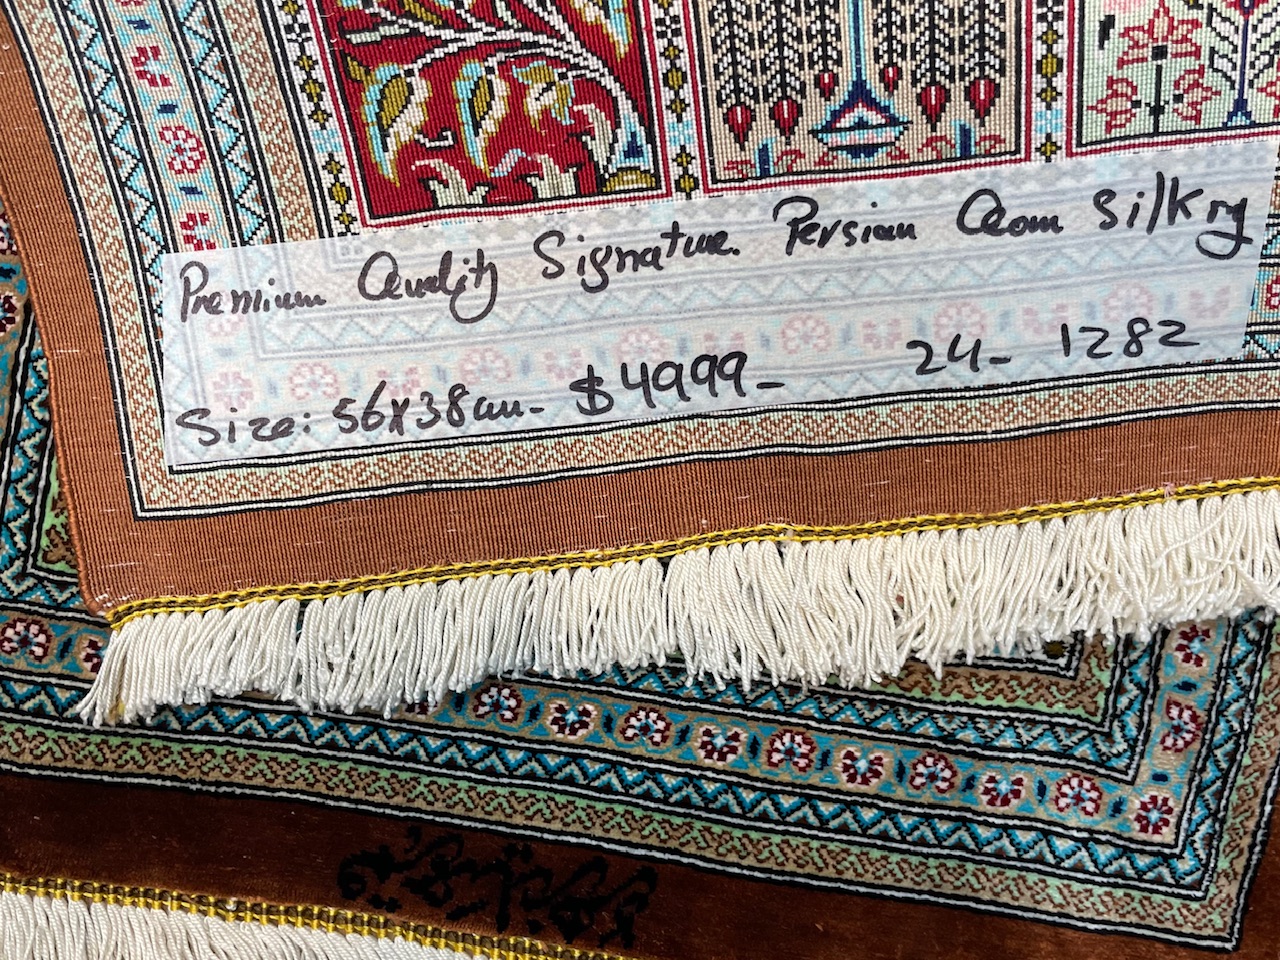 Premium Quality Signature. Persian Qom Silk rug
Size: 56x38cm- $4999- 24- 1282